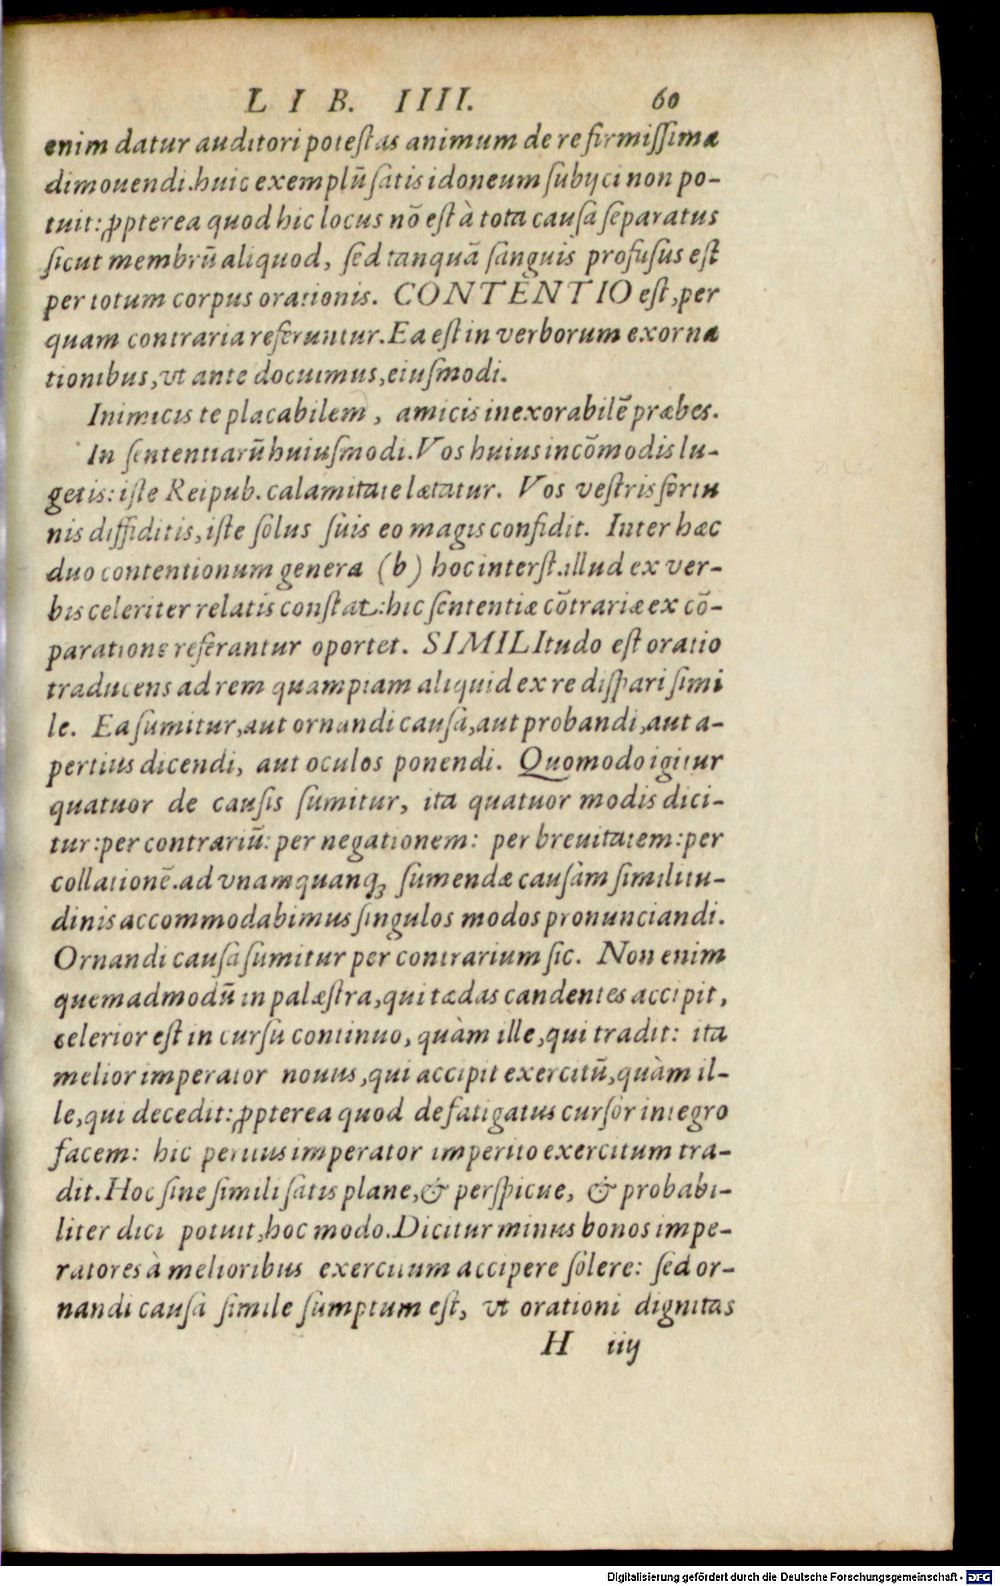 LIB. IIII. 60
enim datur auditori poteſtas animum de re firmiſſima
dimouendi. huic exemplū ſatis idoneum ſubijci non po-
tuit: ꝓpterea quod hic locus nō eſt à tota cauſa ſeparatus
ſicut membrū aliquod, ſed tanquā ſanguis profuſus eſt
per totum corpus orationis. CONTENTIO eſt, per
quam contraria referuntur. Ea eſt in verborum exorna
tionibus, vt ante docuimus, eiuſmodi.
Inimicis te placabilem, amicis inexorabilē præbes.
In ſententiarū huiuſmodi. Vos huius incōmodis lu-
getis: iſte Reipub. calamitate lætatur. Vos veſtris fortu
nis diffiditis, iſte ſolus ſuis eo magis confidit. Inter hæc
duo contentionum genera (b) hoc interſt. illud ex ver-
bis celeriter relatis conſtat: hic ſententiæ cōtrariæ ex cō-
paratione referantur oportet. SIMILItudo eſt oratio
traducens ad rem quampiam aliquid ex re diſpari ſimi
le. Ea ſumitur, aut ornandi cauſa, aut probandi, aut a-
pertius dicendi, aut oculos ponendi. Quomodo igitur
quatuor de cauſis ſumitur, ita quatuor modis dici-
tur: per contrariū: per negationem: per breuitatem: per
collationē. ad vnamquanqꝫ ſumendæ cauſam ſimilitu-
dinis accommodabimus ſingulos modos pronunciandi.
Ornandi cauſa ſumitur per contrarium ſic. Non enim
quemadmodū in palæſtra, qui tædas candentes accipit,
celerior eſt in curſu continuo, quàm ille, qui tradit: ita
melior imperator nouus, qui accipit exercitū, quàm il-
le, qui decedit: ꝓpterea quod defatigatus curſor integro
facem: hic peritus imperator imperito exercitum tra-
dit. Hoc ſine ſimili ſatis plane, & perſpicue, & probabi-
liter dici potuit, hoc modo. Dicitur minus bonos impe-
ratores à melioribus exercitum accipere ſolere: ſed or-
nandi cauſa ſimile ſumptum eſt, vt orationi dignitas
H iiij
Digitalisierung gefördert durch die Deutsche Forschungsgemeinschaft - DFG